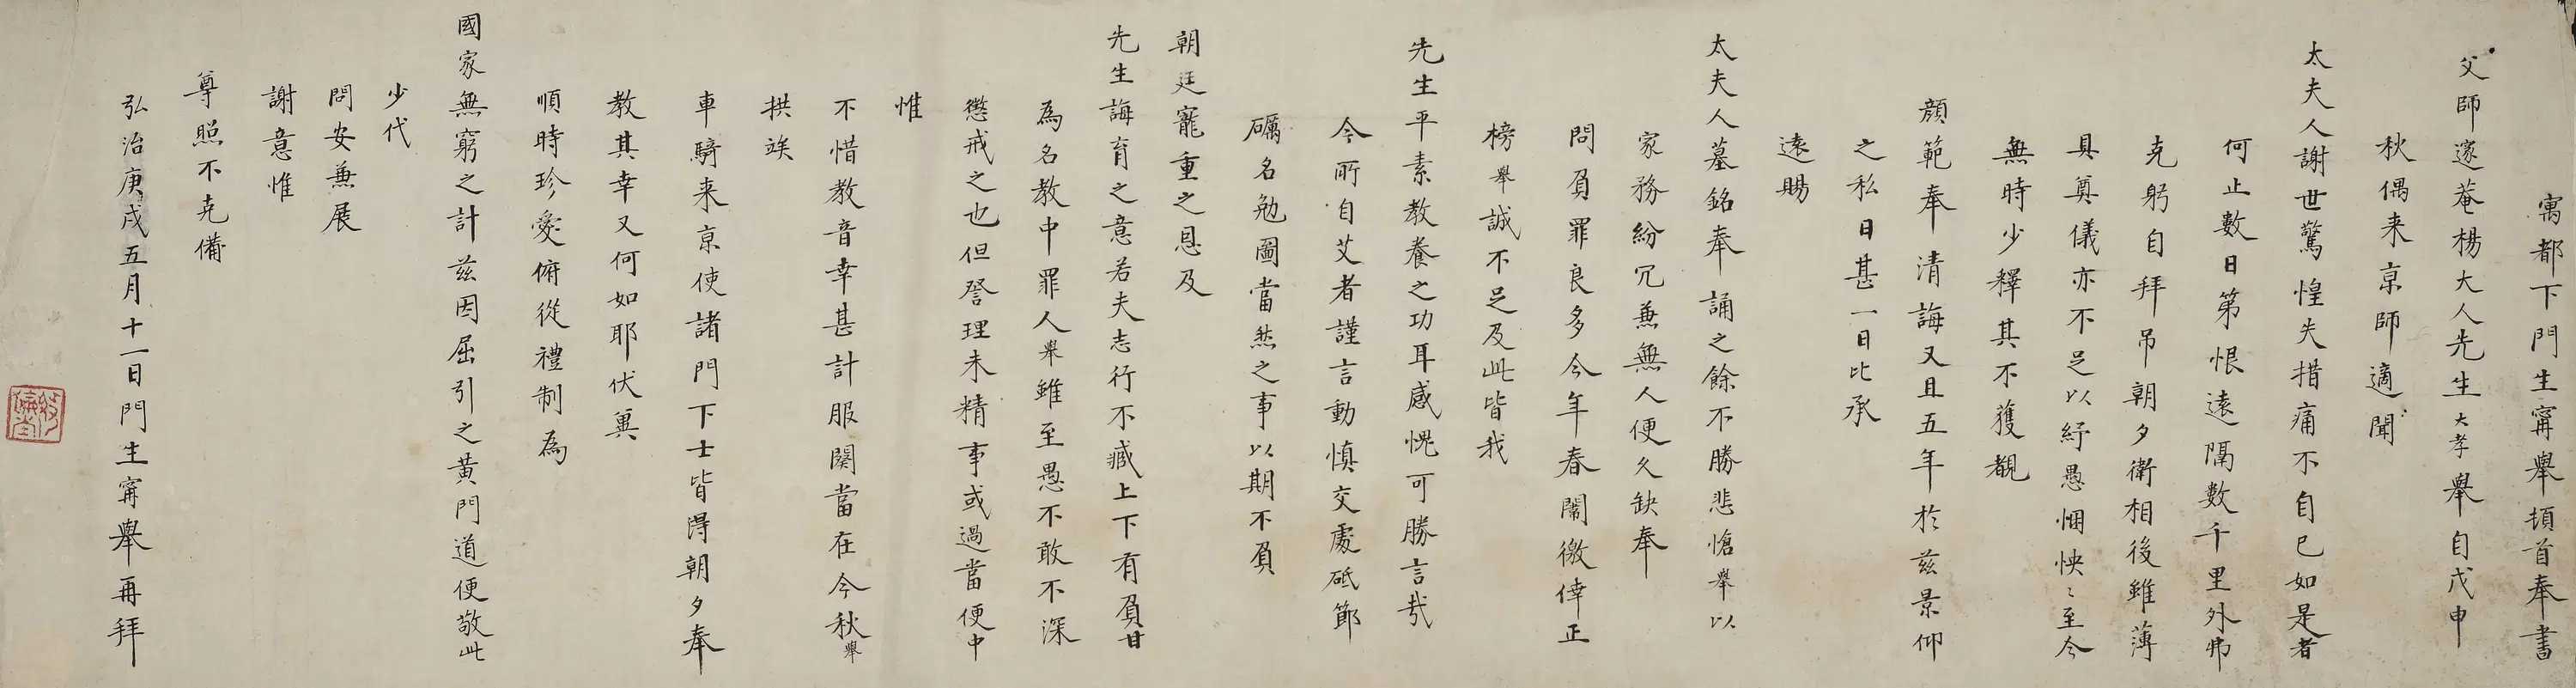 寓都下門生甯舉頓首奉書
父師邃菴楊大人先生大孝舉自戊申
秋偶来京師適聞
太夫人謝世驚惶失措痛不自已如是者
何止數日第恨遠隔數千里外弗
克躬自拜吊朝夕衛相後雖薄
具奠儀亦不足以紓愚悃怏〻至今
無時少釋其不獲覩
顔範奉清誨又且五年於兹景仰
之私日甚一日比承
遠賜
太夫人墓銘奉誦之餘不勝悲愴舉以
家務紛冗兼無人便久缺奉
問負罪良多今年春闈徼倖正
榜舉誠不足及此皆我
先生平素教養之功耳感愧可勝言哉
今所自艾者謹言動慎交處砥節
礪名勉圖當然之事以期不負
朝廷寵重之恩及
先生誨育之意若夫志行不臧上下有負甘
為名教中罪人舉雖至愚不敢不深
懲戒之也但諮理未精事或過當便中
惟
不惜教音幸甚計服闋當在今秋舉
拱竢
車騎来京使諸門下士皆得朝夕奉
教其幸又何如耶伏冀
順時珍愛俯從禮制為
國家無窮之計兹因屈引之黃門道便敬此
少代
問安兼展
謝意惟
尊照不克備
弘治庚戌五月十一日門生甯舉再拜